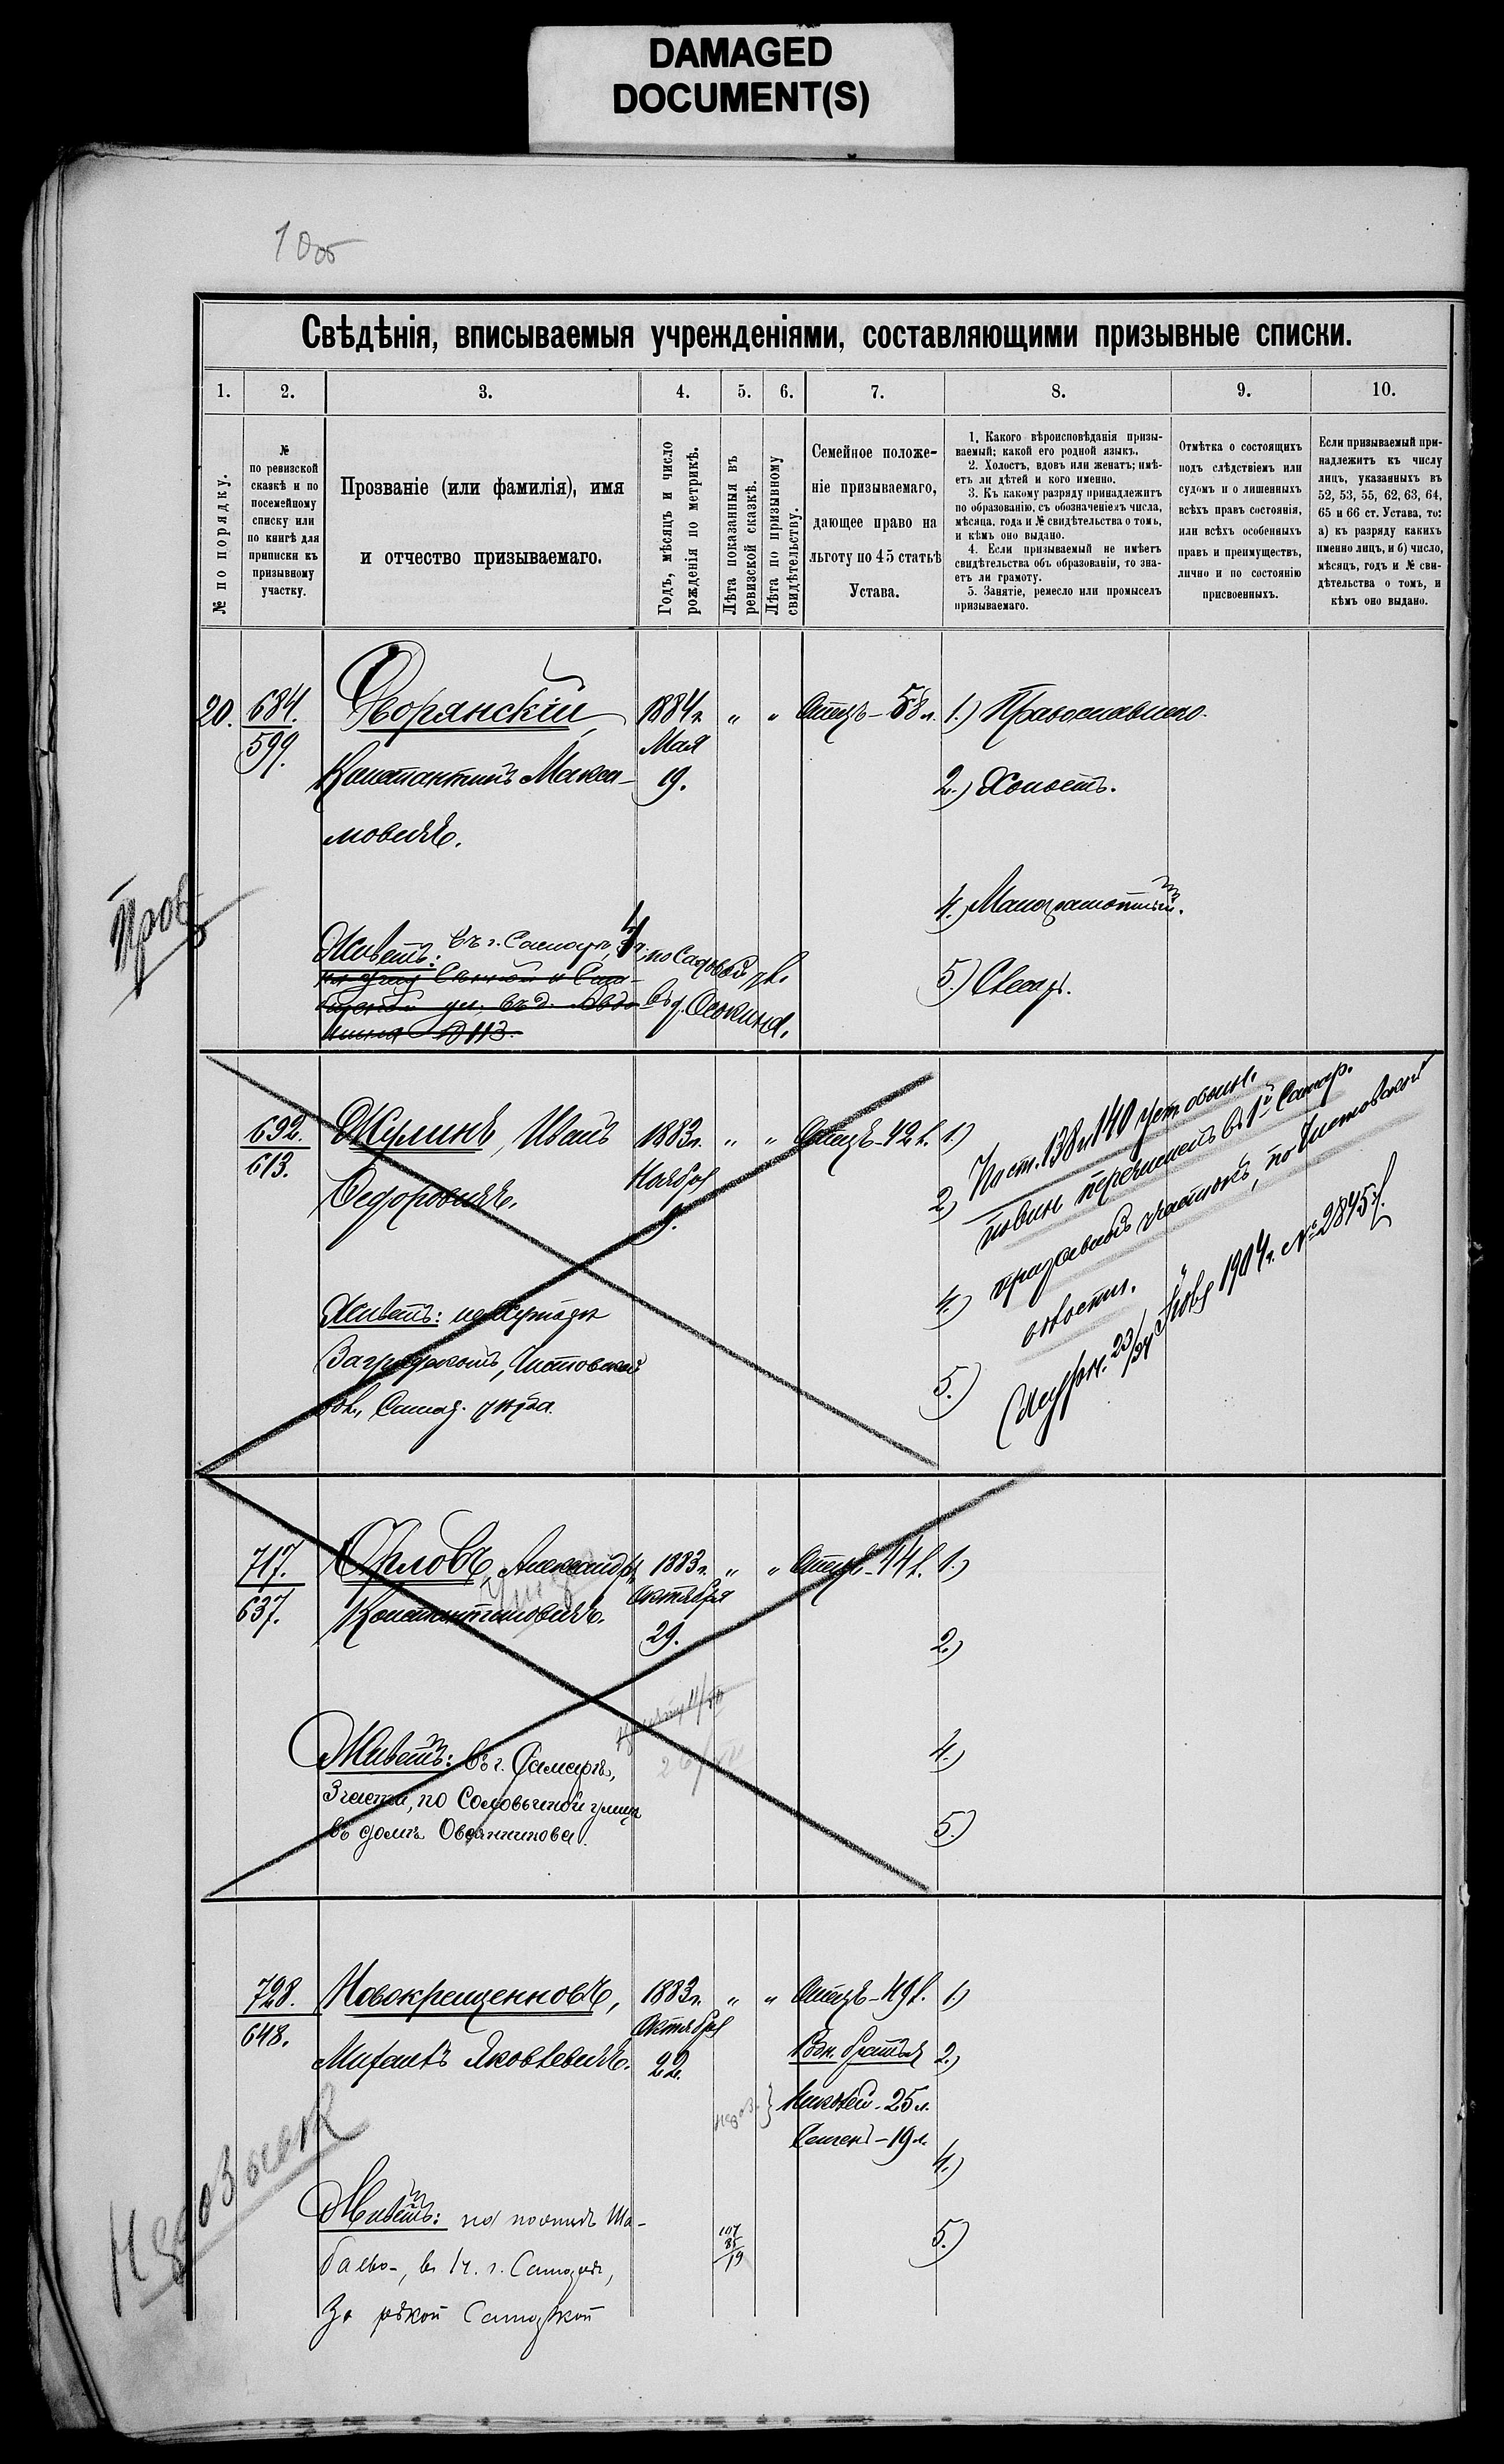 DAMAGED
DOCUMENT(S)
100б
Свѣдѣнія, вписываемыя учрежденіями, составляющими призывные списки.
1. 2. 3. 4. 5. 6. 7. 8. 9. 10.
№ по порядку.
№
по ревизской
сказкѣ и по
посемейному
списку или
по книгѣ для
приписки къ
призывному
участку.
Прозваніе (или фамилія), имя
и отчество призываемаго.
Годъ, мѣсяцъ и число
рожденія по метрикѣ.
Лѣта показанныя въ
ревизской сказкѣ.
Лѣта по призывному
свидѣтельству.
Семейное положе-
ніе призываемаго,
дающее право на
льготу по 45 статьѣ
Устава.
1. Какого вѣроисповѣданія призы-
ваемый; какой его родной языкъ.
2. Холостъ, вдовъ или женатъ; имѣ-
етъ ли дѣтей и кого именно.
3. Къ какому разряду принадлежитъ
по образованію, съ обозначеніемъ числа,
мѣсяца, года и № свидѣтельства о томъ,
и кѣмъ оно выдано.
4. Если призываемый не имѣетъ
свидѣтельства объ образованіи, то зна-
етъ ли грамоту.
5. Занятіе, ремесло или промыселъ
призываемаго.
Отмѣтка о состоящихъ
подъ слѣдствіемъ или
судомъ и о лишенныхъ
всѣхъ правъ состоянія,
или всѣхъ особенныхъ
правъ и преимуществъ,
лично и по состоянію
присвоенныхъ.
Если призываемый при-
надлежитъ къ числу
лицъ, указанныхъ въ
52, 53, 55, 62, 63, 64,
65 и 66 ст. Устава, то:
а) къ разряду какихъ
именно лицъ, и б) число,
мѣсяцъ, годъ и № сви-
дѣтельства о томъ, и
кѣмъ оно выдано.
20. 684. Дворянскій, 1884г. " " Отецъ-58л. 1.) Православнаго.
599. Мая
Константинъ Макси- 19. 2.) Холостъ.
мовичъ.
4.) Малограмотный.
Живетъ: въ г. Самарѣ, 4 ч. по Садовой ул.
въ д. Осокина.
ул., въ д.
№ 113.
5.) Слесарь.
692. Жулинъ, Иванъ 1883г. " " Отецъ-42 л. 1.)
613. Ноября
Федоровичъ. 9. 2.)
По ст. 138 и 140 уст. о воин.
повин. перечисленъ въ 1й Самар.
призывной участокъ, по Чистовской
волости.
23/24 Нояб 1904г. № 2845.
Живетъ: на хуторѣ 4.)
Загродскомъ, Чистовской
вол., Самар. уѣзда. 5.)
717. Орловъ, Александръ 1883г. " " Отецъ-44 л. 1.)
637. Октября
Константиновичъ. 29. 2.)
Живетъ: въ г. Самарѣ, 4.)
3 части, по Соловьиной улицѣ
въ домѣ Овсянникова. 5.)
728. Новокрещенновъ, 1883г. " " Отецъ-49 л. 1.)
648. Октября
Михаилъ Яковлевичъ. 22. Родн. братья 2.)
Николай-25л.
Семенъ-19л.
4.)
Живетъ:
въ 1ч. г. Самары, 5.)
За рѣкой Самаркой
107
85
19